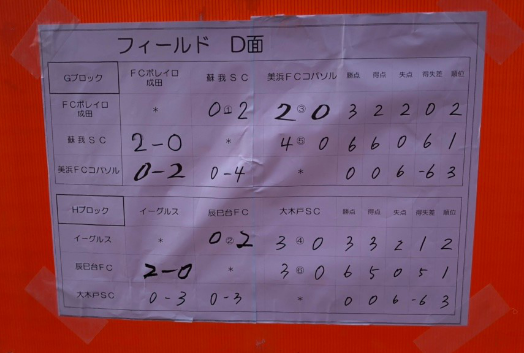 フィールド D面
Gブロック FCボレイロ成田 蘇我SC 美浜FCコパソル 勝点 得点 失点 得失差 順位
FCボレイロ成田 * 0①2 2③0 3 2 2 0 2
蘇我SC 2-0 * 4⑤0 6 6 0 6 1
美浜FCコパソル 0-2 0-4 * 0 0 6 -6 3
Hブロック イーグルス 辰巳台FC 大木戸SC 勝点 得点 失点 得失差 順位
イーグルス * 0②2 3④0 3 3 2 1 2
辰巳台FC 2-0 * 3⑥0 6 5 0 5 1
大木戸SC 0-3 0-3 * 0 0 6 -6 3